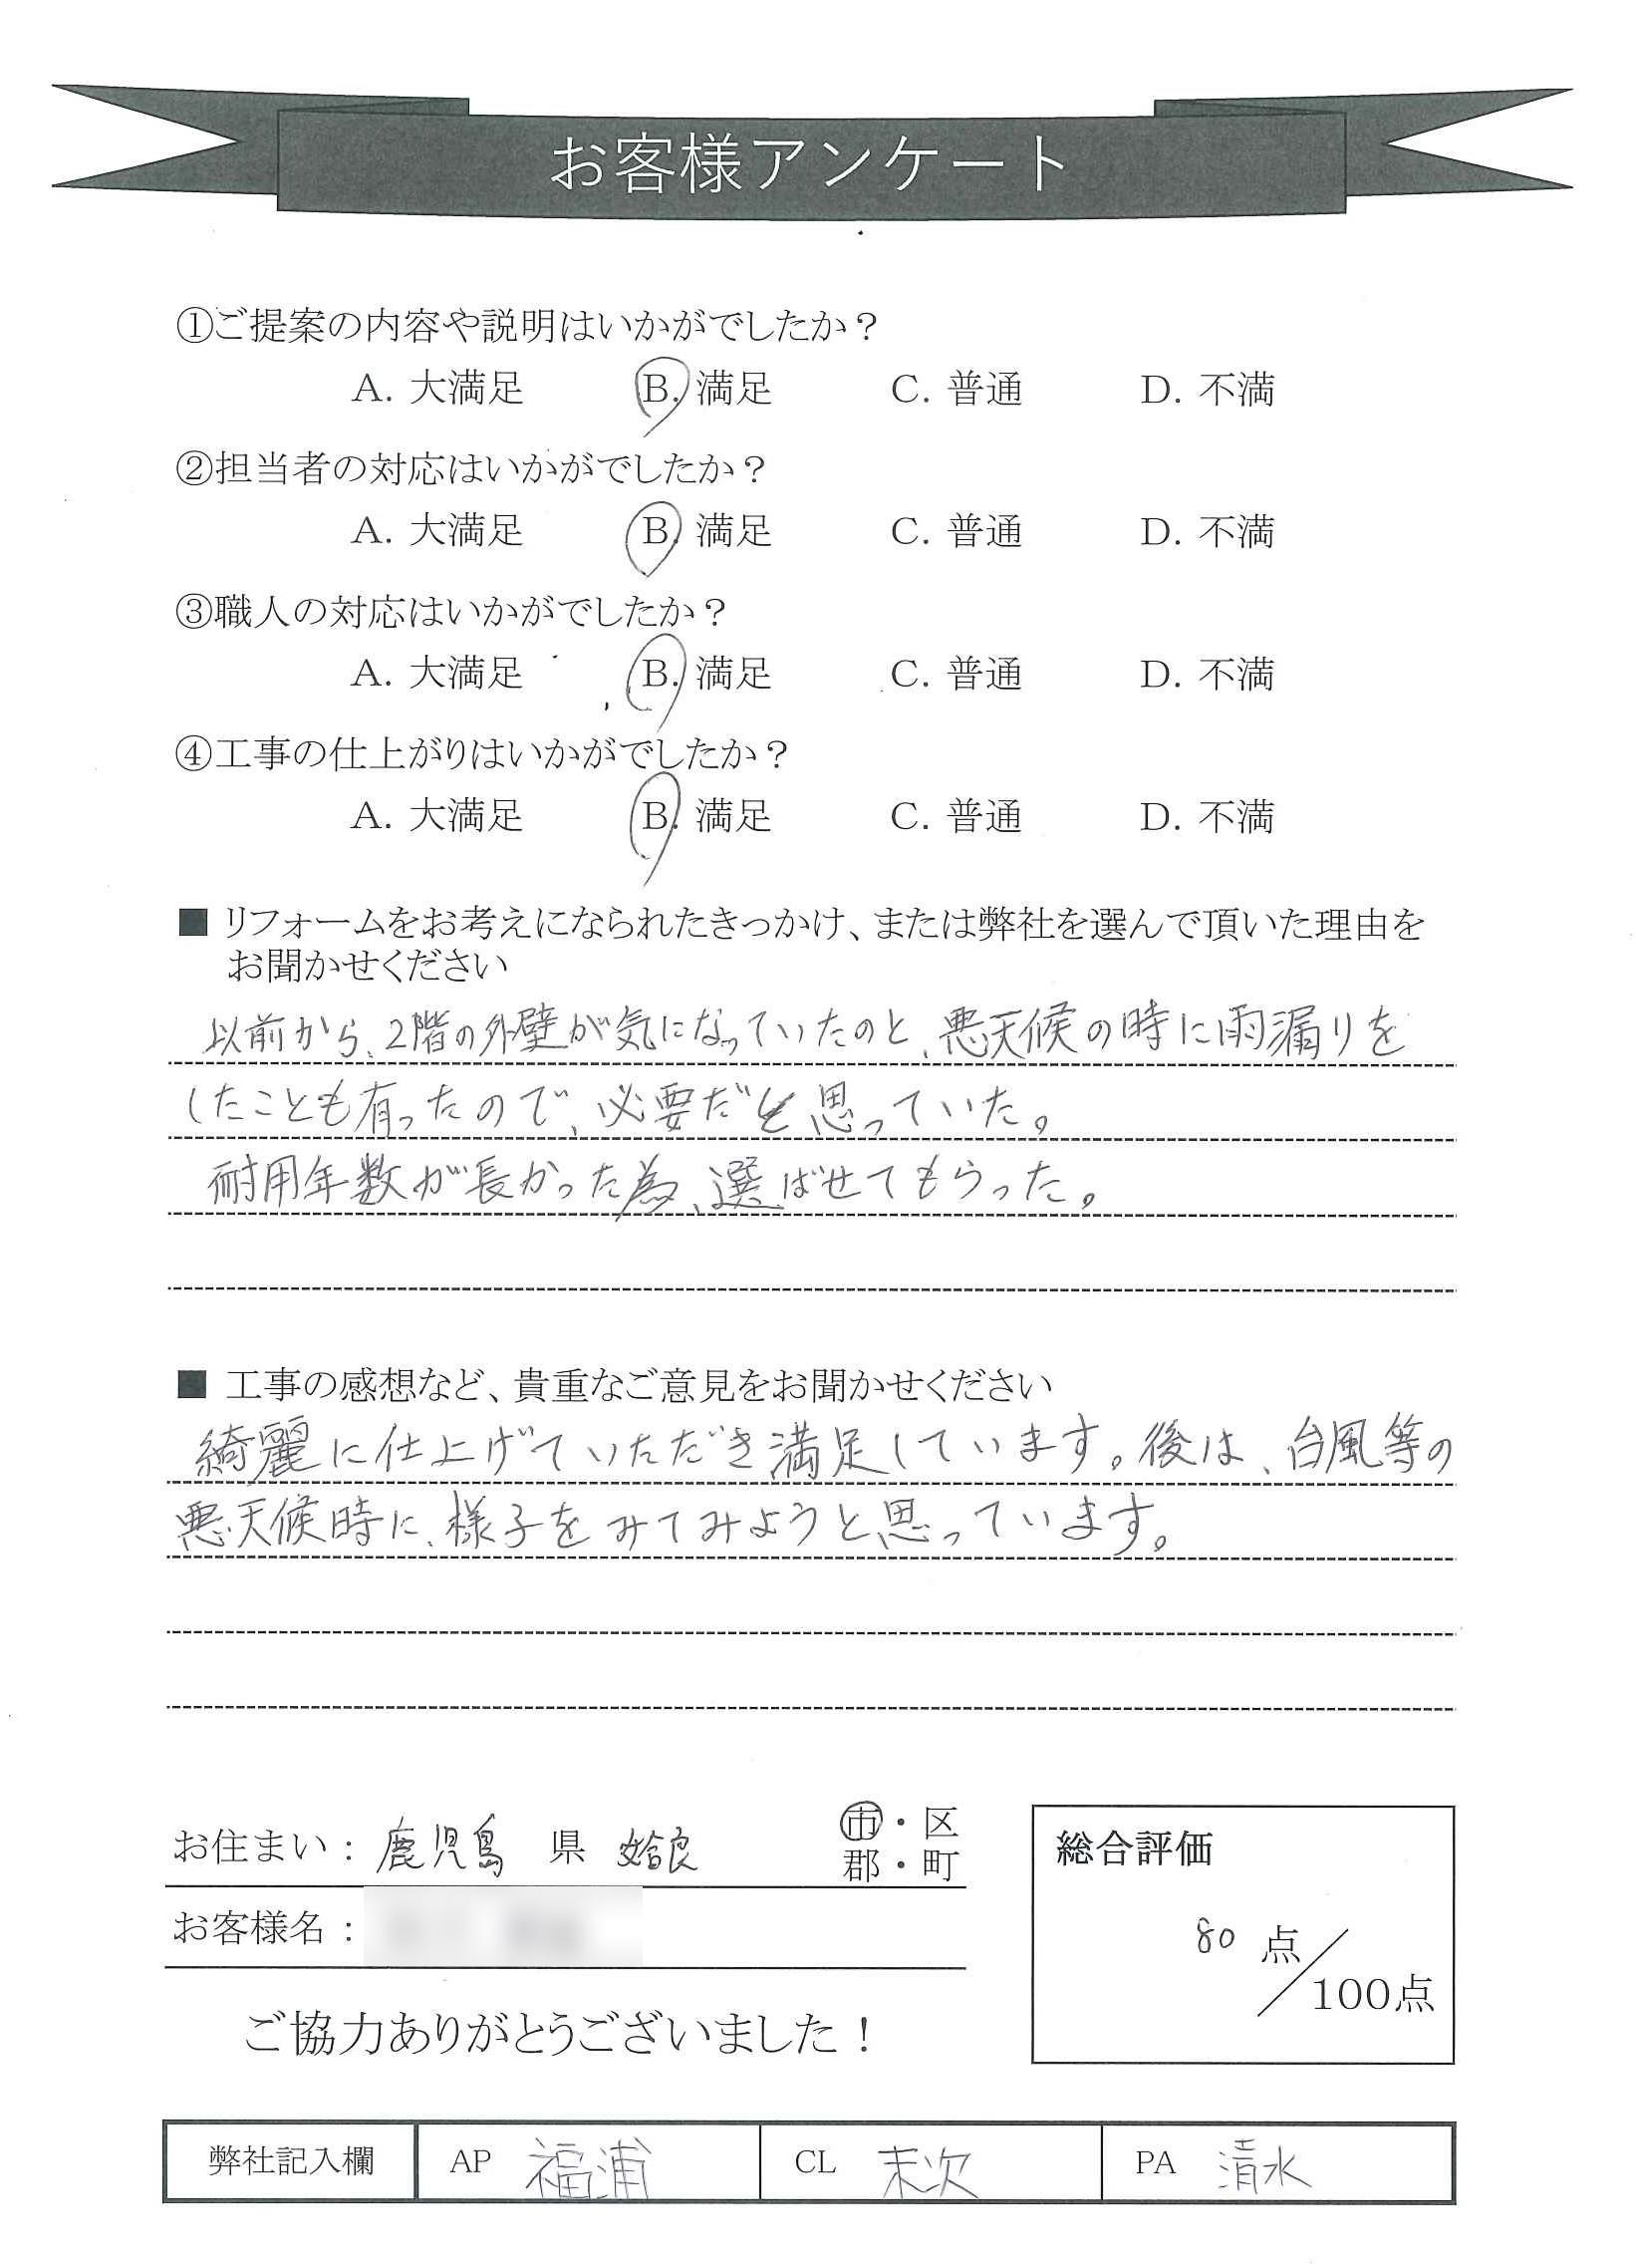 お客様アンケート
①ご提案の内容や説明はいかがでしたか？
A. 大満足 B. 満足 C. 普通 D. 不満
②担当者の対応はいかがでしたか？
A. 大満足 B. 満足 C. 普通 D. 不満
③職人の対応はいかがでしたか？
A. 大満足 B. 満足 C. 普通 D. 不満
④工事の仕上がりはいかがでしたか？
A. 大満足 B. 満足 C. 普通 D. 不満
■ リフォームをお考えになられたきっかけ、または弊社を選んで頂いた理由を
お聞かせください
以前から、2階の外壁が気になっていたのと、悪天候の時に雨漏りを
したことも有ったので、必要だと思っていた。
耐用年数が長かった為、選ばせてもらった。
■ 工事の感想など、貴重なご意見をお聞かせください
綺麗に仕上げていただき満足しています。後は、台風等の
悪天候時に、様子をみてみようと思っています。
お住まい：鹿児島 県 姶良 市・区
郡・町
お客様名：
総合評価
80 点／100点
ご協力ありがとうございました！
弊社記入欄 AP 福浦 CL 末次 PA 清水